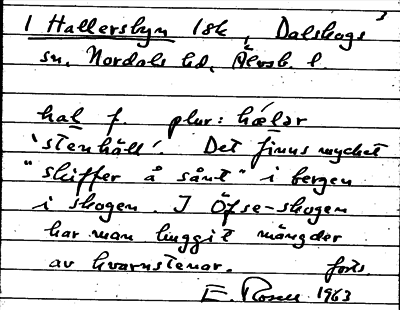 1 Hallersbyn 1sk, Dalskogs
sn, Nordals hd, Älvsb. l.
hal f. plur: hælər
'stenhäll'. Det finns mycket
"skiffer å sånt" i bergen
i skogen. I Öfse-skogen
har man huggit mängder
av kvarnstenar. forts.
E. Rosell 1963